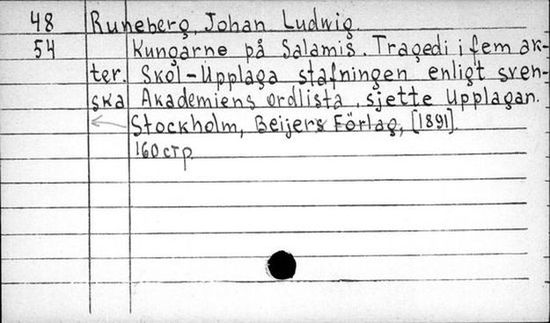 48 Runeberg, Johan Ludwig
54 Kungarne på Salamis. Tragedi i fem ak-
ter. Skol-Upplaga stafningen enligt sven-
ska Akademiens ordlista, sjette Upplagan.
Stockholm, Beijers Förlag, [1891].
160 стр